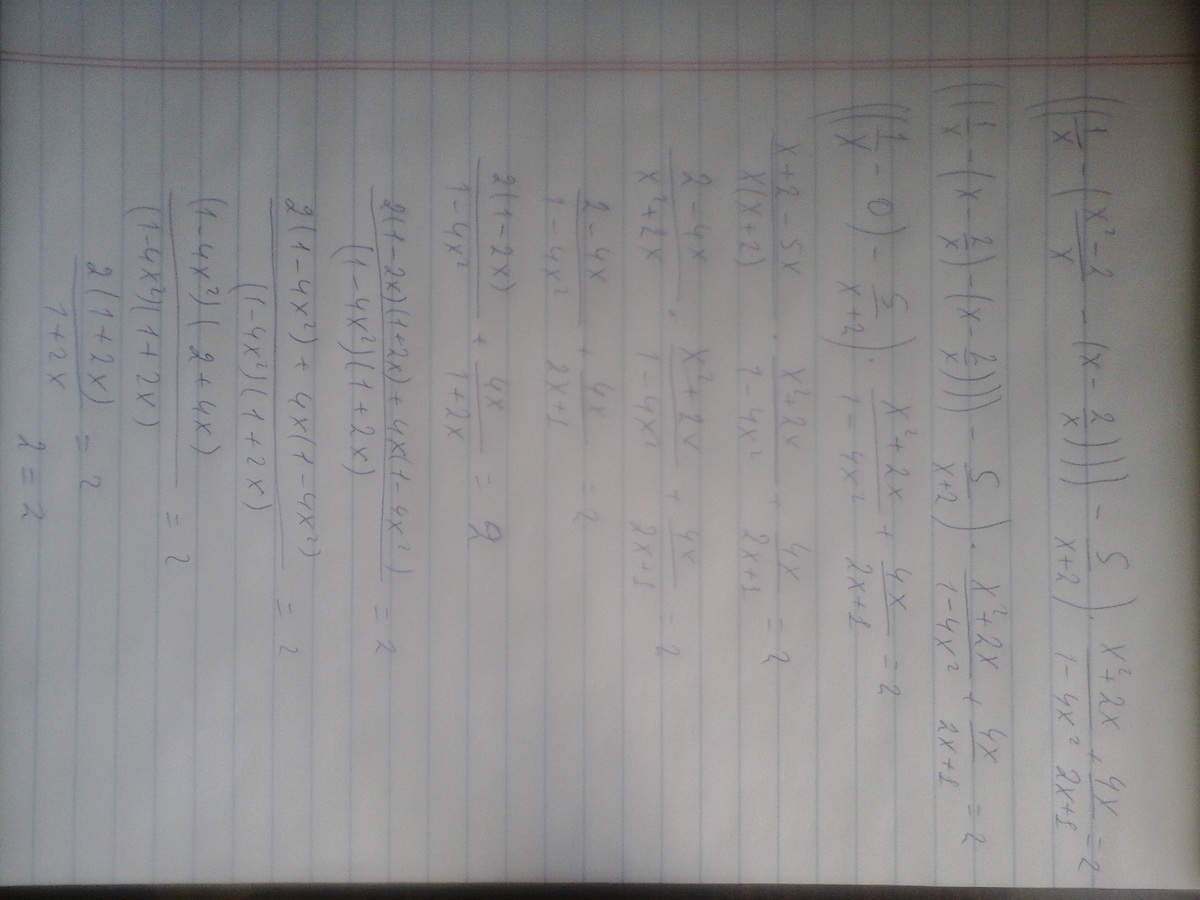 (((1/x - (x²-2/x - (x - 2/x)))) - 5/x+2) · x²+2x/1-4x² + 4x/2x+1 = 2
(((1/x - (x - 2/x) - (x - 2/x)))) - 5/x+2) · x²+2x/1-4x² + 4x/2x+1 = 2
(((1/x - 0) - 5/x+2) · x²+2x/1-4x² + 4x/2x+1 = 2
x+2-5x/x(x+2) · x²+2x/1-4x² + 4x/2x+1 = 2
2-4x/x²+2x · x²+2x/1-4x² + 4x/2x+1 = 2
2-4x/1-4x² + 4x/2x+1 = 2
2(1-2x)/1-4x² + 4x/1+2x = 2
2(1-2x)(1+2x)+4x(1-4x²)/(1-4x²)(1+2x) = 2
2(1-4x²)+4x(1-4x²)/(1-4x²)(1+2x) = 2
(1-4x²)(2+4x)/(1-4x²)(1+2x) = 2
2(1+2x)/1+2x = 2
2=2